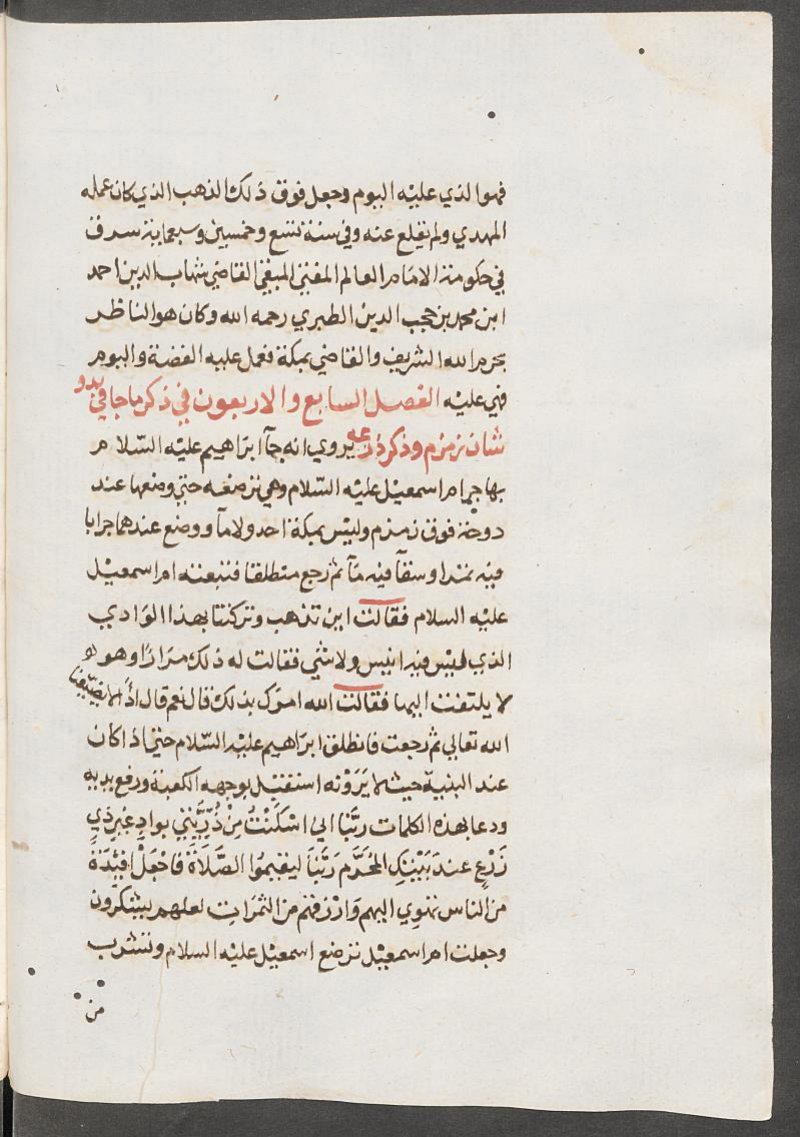 فهوا لذي عليه اليوم وجعل فوق ذلك الذهب الذي كان عمله
المهدي ولم يقلع عنه وفي سنة تسع وخمسين وسبعماية سرق
في حكومة الامام العالم المفتي القاضي شهاب الدين احمد
ابن محمد بن محب الدين الطبري رحمه الله وكان هو الناظر
بحرم الله الشريف والقاضي بمكة فعمل عليه الفضة واليوم
فهي عليه الفصل السابع والاربعون في ذكر ما جا في بدو
شان زمزم وذكر ذرعه يروي انه جآ ابراهيم عليه السلام
بهاجر ام اسمعيل عليه السلام وهي ترضعه حتي وضعها عند
دوحة فوق زمزم وليس بمكة احد ولا مآ ووضع عندهما جرابا
فيه تمرا وسقآ فيه مآ ثم رجع منطلقا فتبعته ام اسمعيل
عليه السلام فقالت اين تذهب وتركتنا بهذا الوادي
الذي ليس فيه انيس ولا شي فقالت له ذلك مرارا وهو
لا يلتفت اليها فقالت الله امرك بذلك قال نعم قال اذًا لا يضيعنا
الله تعالي ثم رجعت فانطلق ابراهيم عليه السلام حتي اذا كان
عند البنية حيث لا يَرَوْنه استقبل بوجهه الكعبة ورفع يديه
ودعا بهذه الكلمات ربَّنا اني اسْكَنْتُ مِنْ ذُرِّيَّتي بوادٍ غيرِ ذي
زَرْعٍ عندَ بَيْتِكَ المُحَرَّم رَبَّنَا ليقيمُوا الصَّلَاةَ فَاجْعَلْ افْئِدَةً
من الناس تهوي اليهم وَارْزقهم من الثمَرَاتِ لعلهم يشكرون
وجعلت ام اسمعيل ترضع اسمعيل عليه السلام وتشرب
من